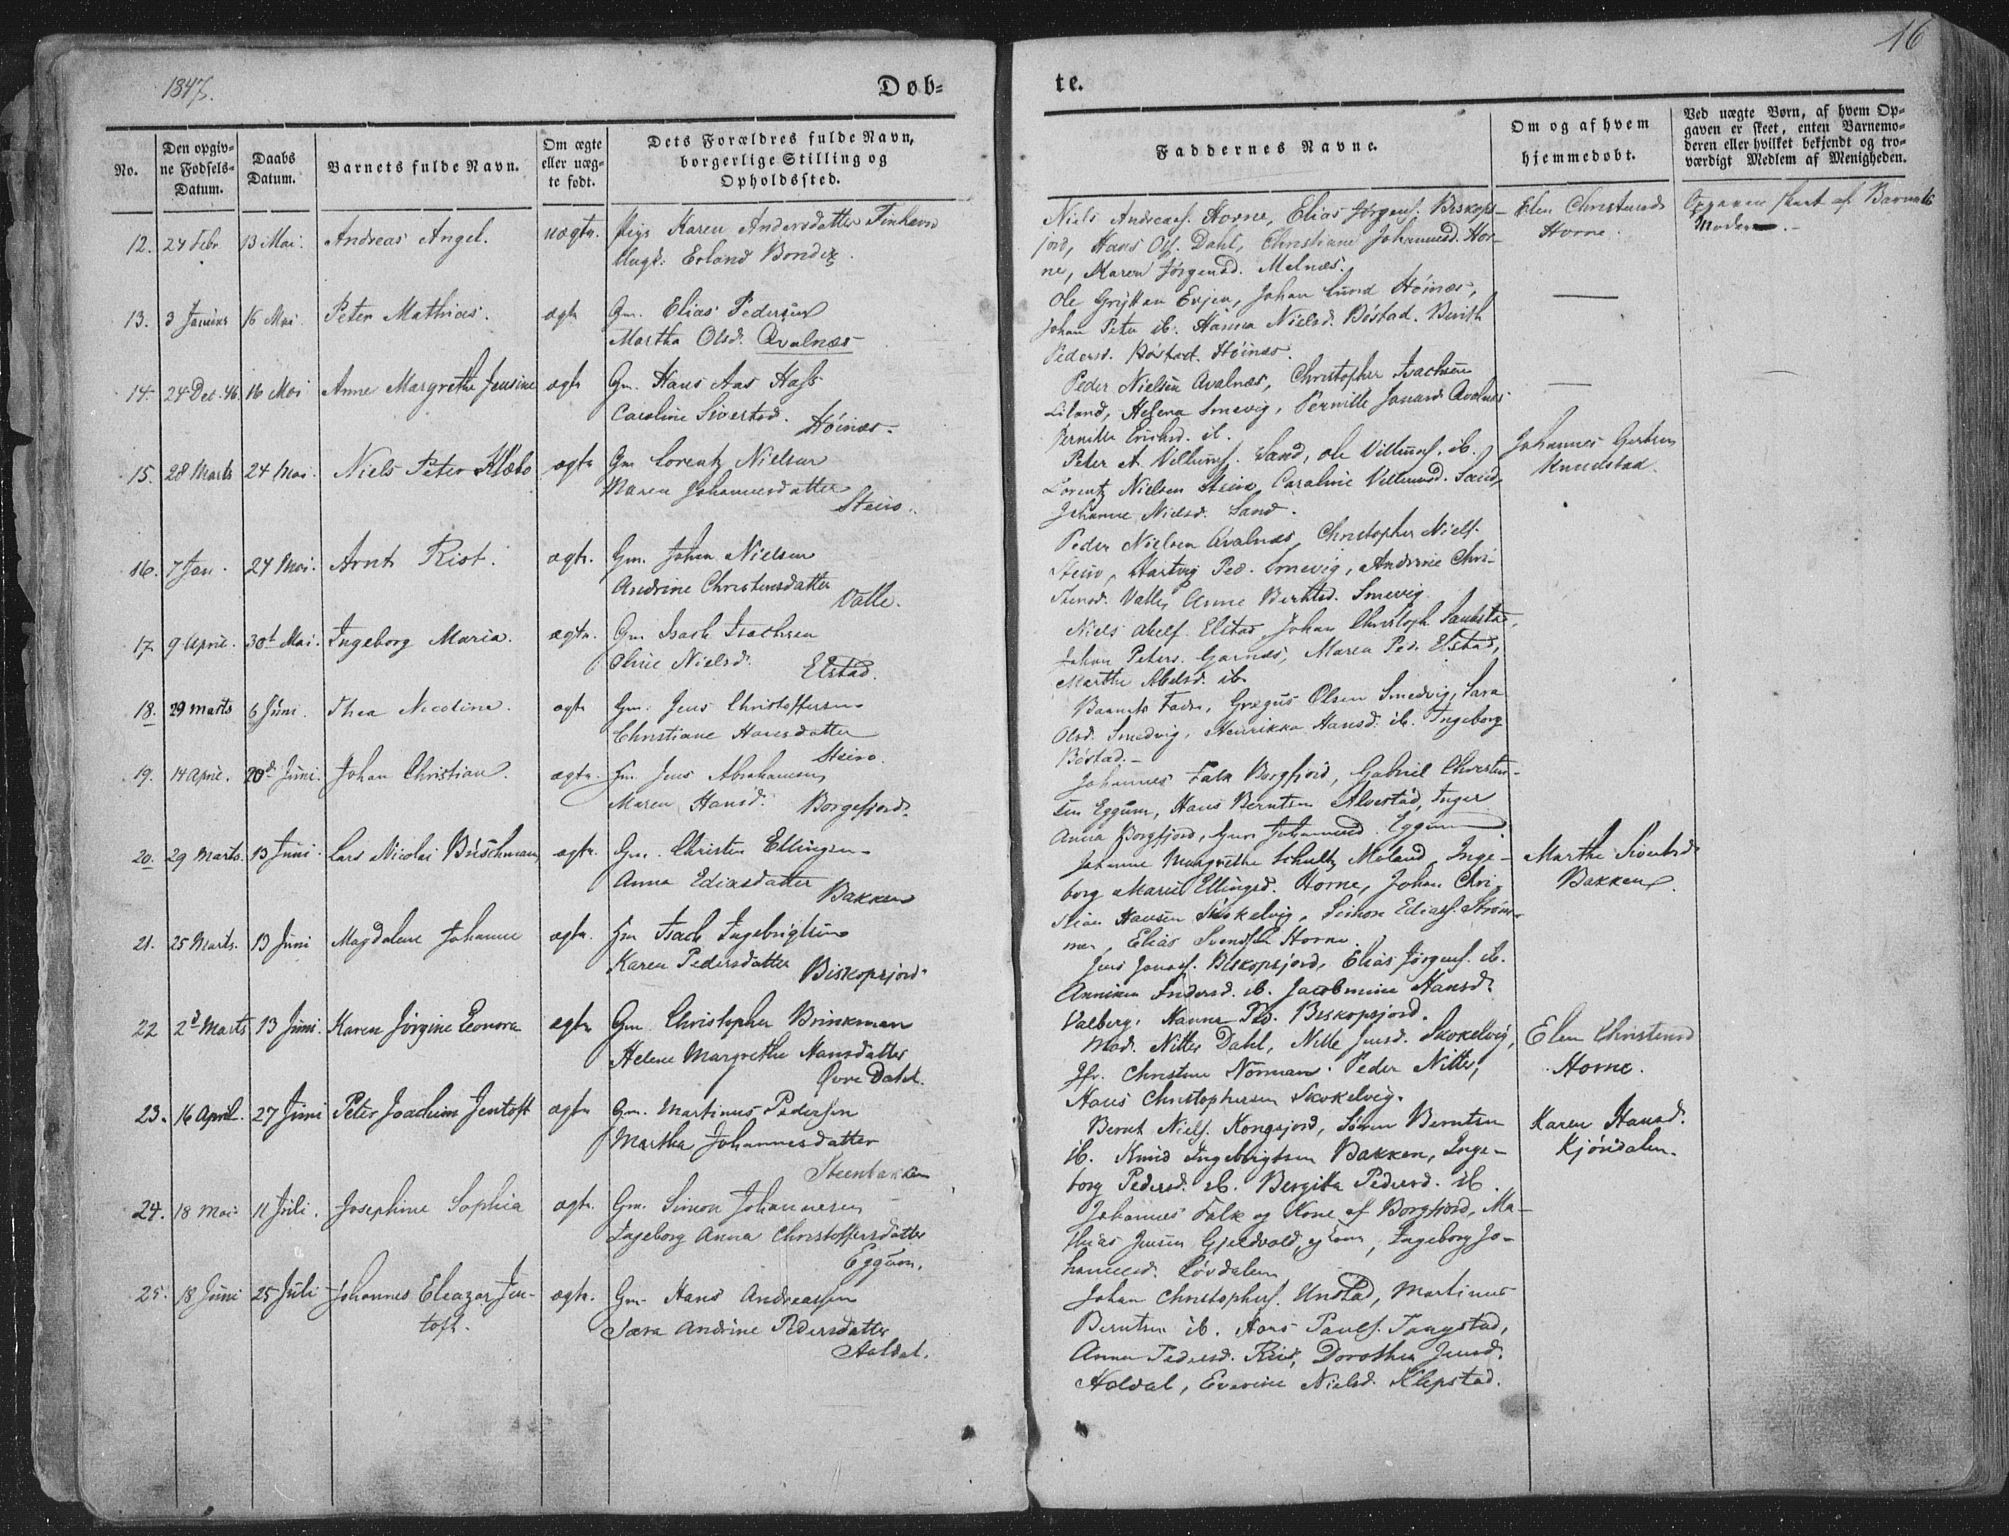 1847.
Døb=
te.
16
No.
Den opgiv=
ne Fødsels=
Datum.
Daabs
Datum.
Barnets fulde Navn.
Om ægte
eller uæg=
te født.
Dets Forældres fulde Navn,
borgerlige Stilling og
Opholdssted.
Faddernes Navne.
Om og af hvem
hjemmedøbt.
Ved uægte Børn, af hvem Op=
gaven er skeet, enten Barnemo=
deren eller hvilket bekjendt og tro=
værdigt Medlem af Menigheden.
12. 27 Febr. 13 Mai. Andreas Angel. uægte. Pige Karen Andersdatter
Ungk: Erland
Niels Andreass. Horne, Elias Jørgens. Biskops-
jord, Hans Ols. Dahl, Christiane Johannesd. Hor-
ne, Maren Jørgensd. Melnæs.
Elen Christensd.
Horne.
Opgaven skeet af Barnets
Moder.
13. 3 Januar 16 Mai. Peter Mathias. ægte Gm. Elias Pedersen
Martha Olsd. Qvalnæs
Ole Evjen, Johan Lund Höinæs,
Johan Peter ib. Hanna Nielsd. Böstad. Berith
Pedersd. Böstad. Höinæs.
14. 24 Dec. 46. 16 Mai Anne Margrethe Jensine ægte Gm. Hans Aas Hass
Caroline Sivertsd. Höinæs.
Peder Nielsen Qvalnæs, Christopher Isachsen
Liland, Helena Smevig, Pernille Jonasd. Qvalnæs
Pernilla ib.
15. 28 Marts 24 Mai. Niels Peter Klæbo ægte Gm Lorentz Nielsen
Maren Johannesdatter
Steiro.
Peter A. Villums. Sand, Ole Villums. ib.
Lorentz Nielsen Steiro, Caroline Villumsd. Sand,
Johanne Nielsd. Sand.
Johannes
Knudstad.
16. 7 Jan. 24 Mai. Arnt Rist. ægte. Gm. Johan Nielsen
Andrine Christensdatter
Valle.
Peder Nielsen Qvalnæs, Christopher Niels.
Steiro, Hartvig Ped. Smevig, Andrine Chri-
stensd. Valle, Anne Berntsd. Smevig.
17. 9 April. 30t Mai. Ingeborg Maria. ægte. Gm Isach Isachsen
Oline Nielsd. Elstad.
Niels Abels. Elstad, Johan Christoph.
Johan Peters. Garnæs, Maren Ped. Elstad,
Marthe Abelsd. ib.
18. 29 Marts 6 Juni. Thea Nicoline. ægte Gm. Jens Christoffersen
Christiane Hansdatter
Steiro.
Barnets Fader, Gregus Olsen Smedvig, Sara
Olsd. Smedvig, Henrikka Hansd. ib. Ingeborg
Böstad.
19. 14 April. 20d Juni. Johan Christian. ægte. Gm. Jens Abrahamsen
Maren Hansd. Borgefjord.
Johannes Falk Borgfjord, Gabriel Christen-
sen Eggum, Hans Berntsen Alvestad, Inger
Anna Borgfjord, Johannesd. Eggum
20. 29 Marts. 13 Juni. Lars Nicolai Büschman ægte. Gm. Christen Ellingsen
Anna Ediasdatter
Bakken
Johanne Margrethe Schultz Moland, Inge-
borg Marie Ellingsd. Horne, Johan Chri-
stian Hansen Skokelvig, Simon Edias. Ström-
men, Elias Svendsen Horne.
Marthe Sivertsd.
Bakken.
21. 25 Marts. 13 Juni Magdalene Johanne ægte. Gm Isach Ingebrigtsen
Karen Pedersdatter Biskopsjord.
Jens Jonas. Biskopsjord, Elias Jörgens. ib.
Anniken Andersd. ib. Jacobmine Hansd.
Valberg, Nanna Ped. Biskopsjord.
22 2d Marts 13 Juni. Karen Jörgine Leonora ægte Gm. Christopher Brinkman
Helene Margrethe Hansdatter
Övre Dahl.
Mad. Nitter Dahl, Nille Jensd. Skokelvig,
Jfr. Christine Norman. Peder Nitter,
Hans Christophersen Skokelvig.
Elen Christensd
Horne.
23. 16 April. 27 Juni Peter Joachim Jentoft ægte Gm. Martinus Pedersen
Martha Johannesdatter
Steenbakken
Bernt Niels. Kongsjord, Sören Berntsen
ib. Knud Ingebrigtsen Bakken, Inge-
borg Pedersd. ib. Bergitha Pedersd. ib.
Karen Hansd.
Kjöridalen.
24. 18 Mai 11 Juli. Josephine Sophia ægte. Gm. Simon Johannesen
Ingeborg Anna Christoffersdatter
Eggum.
Johannes Falk og Kone af Borgfjord, Ma-
thias Jensen Gjeldvold, og Kone, Ingeborg Jo-
hannesd. Lövdalen
25. 18 Juni 25 Juli Johannes Eleazar Jen-
toft. ægte. Gm. Hans Andreassen
Sara Andrine Pedersdatter
Holdal.
Johan Christophers. Unstad, Martinus
Berntsen ib. Hans Pauls. Tangstad,
Anna Pedersd. Riis, Dorothea Jensd.
Holdal, Everine Nielsd. Klepstad.